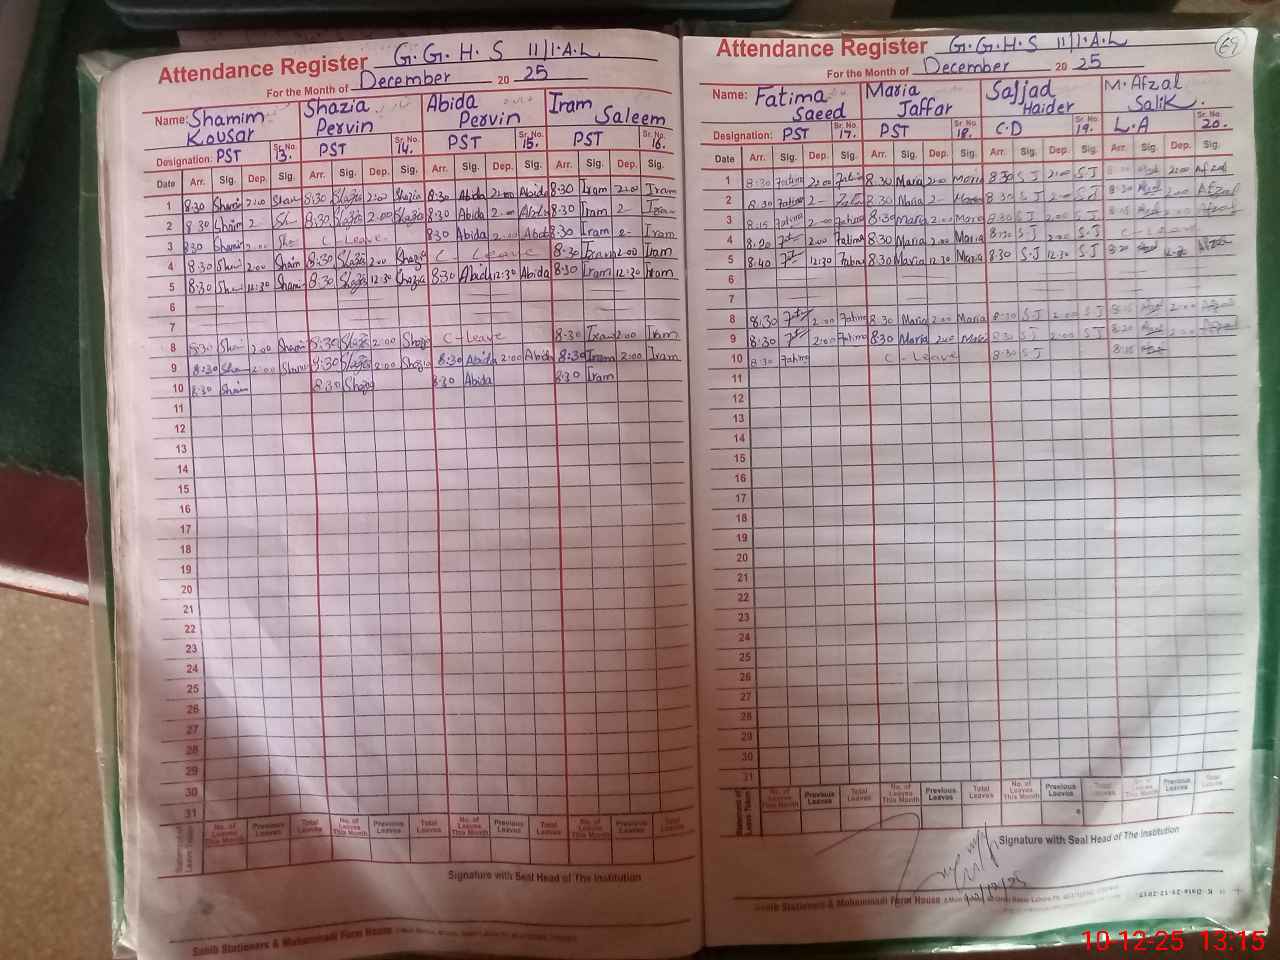 Attendance Register G.G.H.S 11/1.A.L
For the Month of December 20 25
Name: Shamim Kousar Shazia Pervin Abida Pervin Iram Saleem
Designation: PST Sr. No. 13. PST Sr. No. 14. PST Sr. No. 15. PST Sr. No. 16.
Date Arr. Sig. Dep. Sig. Arr. Sig. Dep. Sig. Arr. Sig. Dep. Sig. Arr. Sig. Dep. Sig.
1 8:30 2:00 8:30 Shazia 2:00 Shazia 8:30 Abida 2:00 Abida 8:30 Iram 2:00 Iram
2 8:30 Sham 8:30 Shazia 2:00 Shazia 8:30 Abida 2- 8:30 Iram 2- Iram
3 8:30 C-Leave 8:30 Abida 2:00 8:30 Iram 2- Iram
4 8:30 2:00 Sham 8:30 Shazia 2:00 C-Leave 8:30 Iram 2:00 Iram
5 8:30 12:30 8:30 Shazia 12:30 Shazia 8:30 Abida 12:30 Abida 8:30 Iram 12:30 Iram
6
7
8 8:30 2:00 8:30 Shazia 2:00 C-Leave 8:30 Iram 2:00 Iram
9 8:30 2:00 8:30 Shazia 2:00 8:30 Abida 2:00 Abida 8:30 Iram 2:00 Iram
10 8:30 8:30 8:30 Abida 8:30 Iram
11
12
13
14
15
16
17
18
19
20
21
22
23
24
25
26
27
28
29
30
31
No. of Leaves This Month Previous Leaves Total Leaves No. of Leaves This Month Previous Leaves Total Leaves No. of Leaves This Month Previous Leaves Total Leaves No. of Leaves This Month Previous Leaves Total Leaves
Signature with Seal Head of The Institution
Sabih Stationers & Muhammadi Form House
Attendance Register G.G.H.S 11/1.A.L 69
For the Month of December 20 25
Name: Fatima Saeed Maria Jaffar Sajjad Haider M. Afzal Salik.
Designation: PST Sr. No. 17. PST Sr. No. 18. C.D Sr. No. 19. L.A Sr. No. 20.
Date Arr. Sig. Dep. Sig. Arr. Sig. Dep. Sig. Arr. Sig. Dep. Sig. Arr. Sig. Dep. Sig.
1 8:30 Fatima 2:00 8:30 Maria 2:00 Maria 8:30 S J 2:00 S.J 2:00 Afzal
2 8:30 Fatima 2- 8:30 Maria 2- 8:30 S J 2:00 S.J 8:20 2:00 Afzal
3 8:15 Fatima 2:00 Fatima 8:30 Maria 2:00 8:30 S.J 2:00 S.J 8:15 2:00 Afzal
4 8:20 2:00 Fatima 8:30 Maria 2:00 Maria 8:30 S.J 2:00 S.J C-Leave
5 8:40 12:30 8:30 Maria 12:30 Maria 8:30 S.J 12:30 S J 8:20
6
7
8 8:30 2:00 Fatima 8:30 Maria 2:00 Maria 8:30 S J 2:00 S J 8:15 2:00
9 8:30 2:00 Fatima 8:30 Maria 2:00 8:30 S J 2:00 S J 8:20 2:00
10 8:30 Fatima C-Leave 8:30 S J 8:15
11
12
13
14
15
16
17
18
19
20
21
22
23
24
25
26
27
28
29
30
31
No. of Leaves This Month Previous Leaves Total Leaves No. of Leaves This Month Previous Leaves Total Leaves No. of Leaves This Month Previous Leaves Total Leaves No. of Leaves This Month Previous Leaves Total Leaves
Signature with Seal Head of The Institution
10/12/25
Sabih Stationers & Muhammadi Form House
10-12-25 13:15